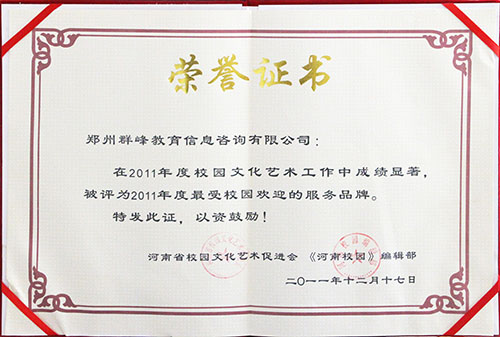 荣誉证书
郑州群峰教育信息咨询有限公司：
在2011年度校园文化艺术工作中成绩显著，
被评为2011年度最受校园欢迎的服务品牌。
特发此证，以资鼓励！
河南省校园文化艺术促进会 《河南校园》编辑部
二〇一一年十二月十七日